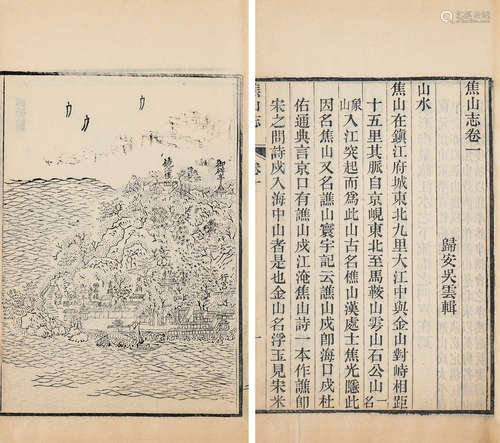 焦山志卷一
歸安吳雲輯
山水
焦山在鎮江府城東北九里大江中與金山對峙相距
十五里其脈自京峴東北至馬鞍山雩山石公山一名
象山入江突起而爲此山古名樵山漢處士焦光隱此
因名焦山又名譙山寰宇記云譙山戍卽海口戍杜
佑通典言京口有譙山戍江淹焦山詩一本作譙卽
宋之問詩戍入海中山者是也金山名浮玉見宋米
焦山志
卷一
一